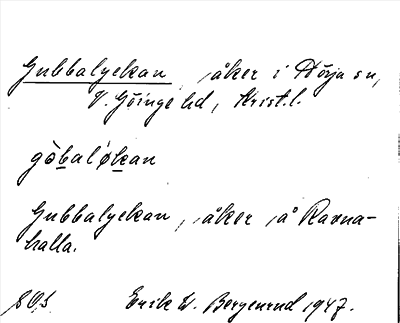 Gubbalyckan, åker i Nörja sn,
V. Göinge hd, Krist. l.
gòbaløkan
Gubbalyckan, åker å Ravna-
halla.
Erik W. Bergenrud 1947.